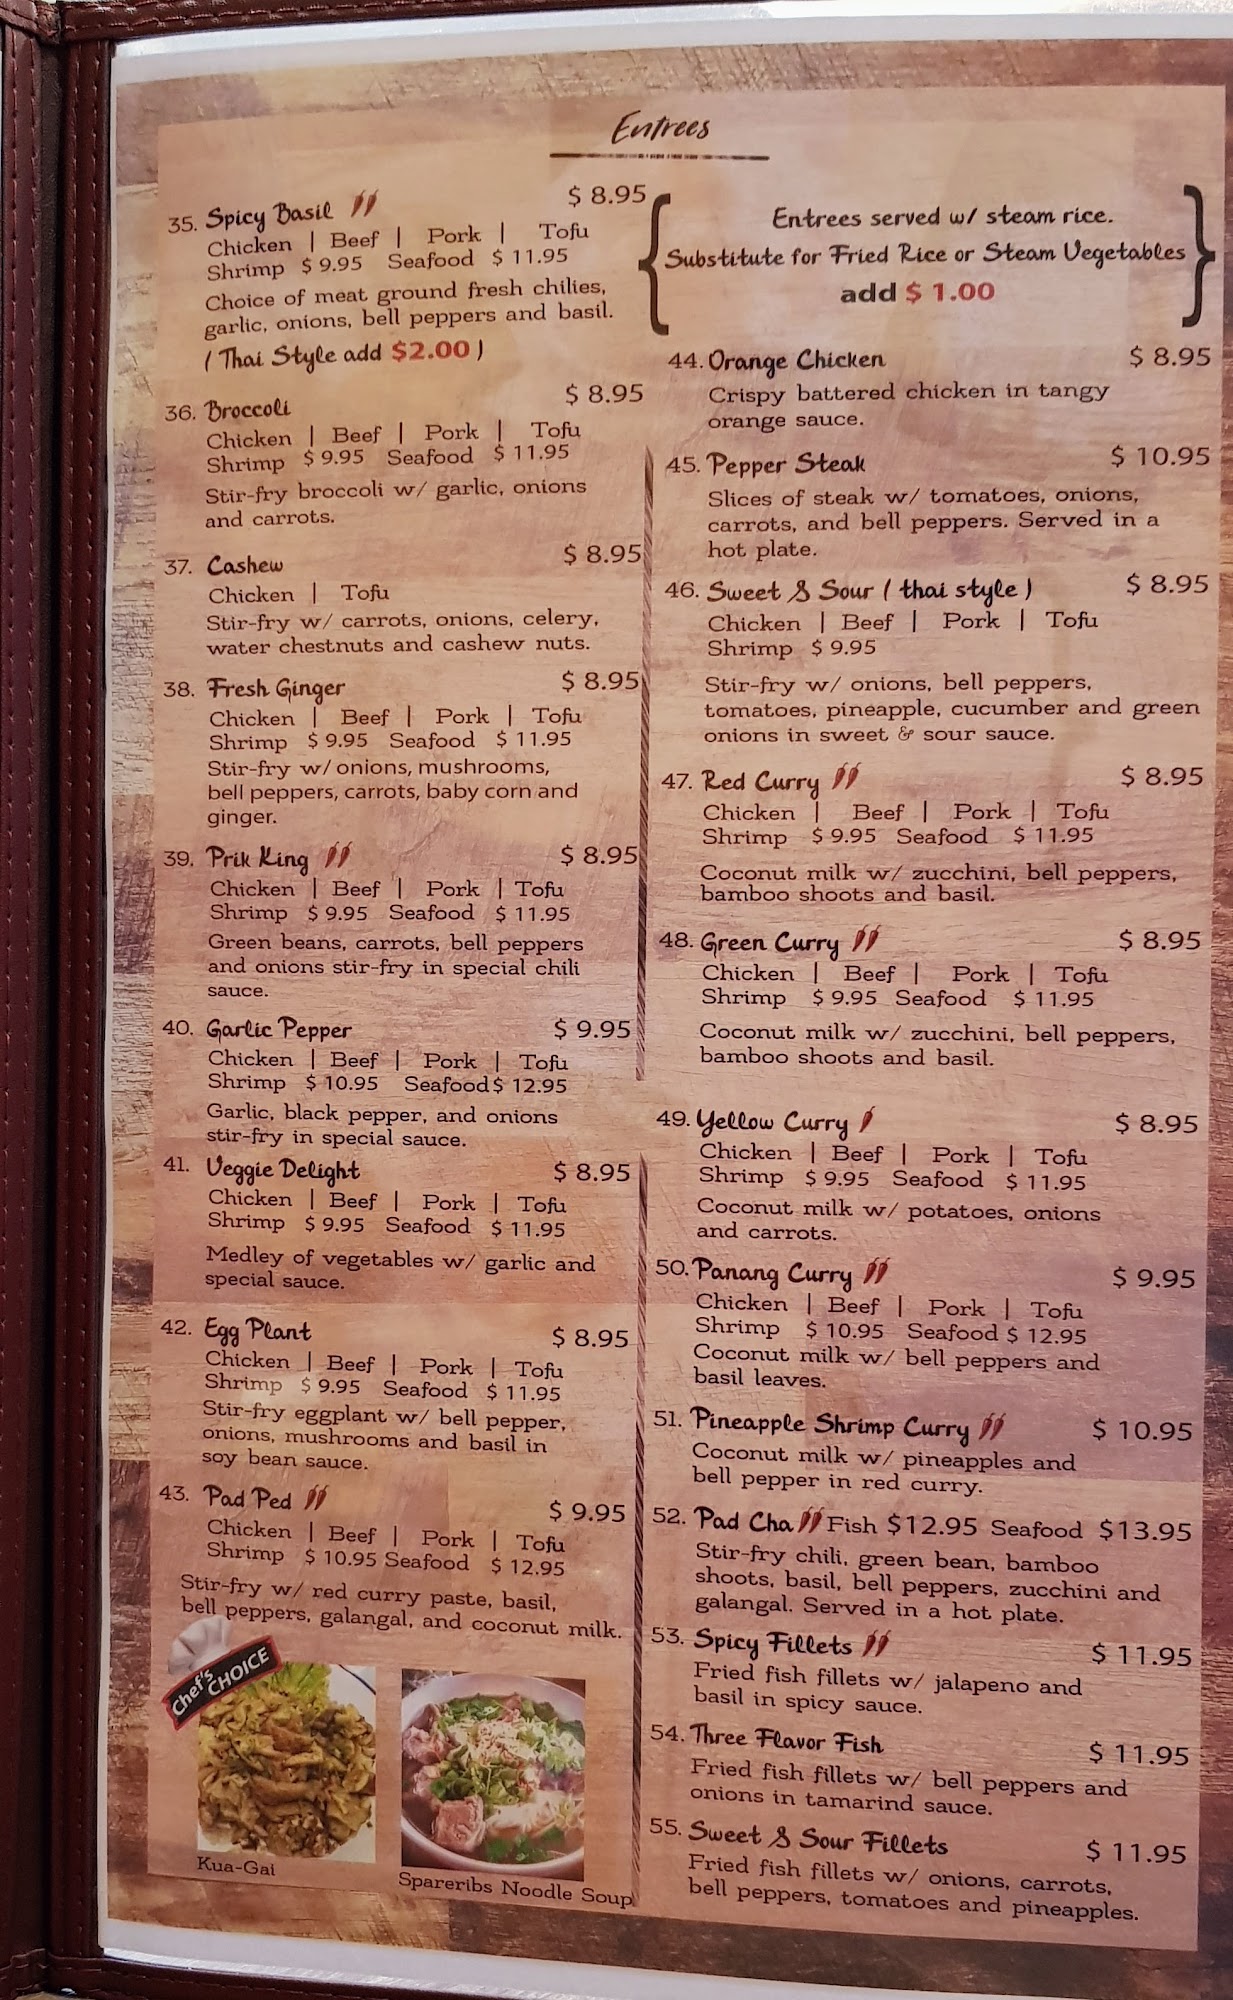 Entrees
35. Spicy Basil $ 8.95
Chicken | Beef | Pork | Tofu
Shrimp $ 9.95 Seafood $ 11.95
Choice of meat ground fresh chilies,
garlic, onions, bell peppers and basil.
( Thai Style add $2.00 )
36. Broccoli $ 8.95
Chicken | Beef | Pork | Tofu
Shrimp $ 9.95 Seafood $ 11.95
Stir-fry broccoli w/ garlic, onions
and carrots.
37. Cashew $ 8.95
Chicken | Tofu
Stir-fry w/ carrots, onions, celery,
water chestnuts and cashew nuts.
38. Fresh Ginger $ 8.95
Chicken | Beef | Pork | Tofu
Shrimp $ 9.95 Seafood $ 11.95
Stir-fry w/ onions, mushrooms,
bell peppers, carrots, baby corn and
ginger.
39. Prik King $ 8.95
Chicken | Beef | Pork | Tofu
Shrimp $ 9.95 Seafood $ 11.95
Green beans, carrots, bell peppers
and onions stir-fry in special chili
sauce.
40. Garlic Pepper $ 9.95
Chicken | Beef | Pork | Tofu
Shrimp $ 10.95 Seafood $ 12.95
Garlic, black pepper, and onions
stir-fry in special sauce.
41. Veggie Delight $ 8.95
Chicken | Beef | Pork | Tofu
Shrimp $ 9.95 Seafood $ 11.95
Medley of vegetables w/ garlic and
special sauce.
42. Egg Plant $ 8.95
Chicken | Beef | Pork | Tofu
Shrimp $ 9.95 Seafood $ 11.95
Stir-fry eggplant w/ bell pepper,
onions, mushrooms and basil in
soy bean sauce.
43. Pad Ped $ 9.95
Chicken | Beef | Pork | Tofu
Shrimp $ 10.95 Seafood $ 12.95
Stir-fry w/ red curry paste, basil,
bell peppers, galangal, and coconut milk.
Chef's
CHOICE
Kua-Gai
Spareribs Noodle Soup
Entrees served w/ steam rice.
Substitute for Fried Rice or Steam Vegetables
add $ 1.00
44. Orange Chicken $ 8.95
Crispy battered chicken in tangy
orange sauce.
45. Pepper Steak $ 10.95
Slices of steak w/ tomatoes, onions,
carrots, and bell peppers. Served in a
hot plate.
46. Sweet & Sour ( thai style ) $ 8.95
Chicken | Beef | Pork | Tofu
Shrimp $ 9.95
Stir-fry w/ onions, bell peppers,
tomatoes, pineapple, cucumber and green
onions in sweet & sour sauce.
47. Red Curry $ 8.95
Chicken | Beef | Pork | Tofu
Shrimp $ 9.95 Seafood $ 11.95
Coconut milk w/ zucchini, bell peppers,
bamboo shoots and basil.
48. Green Curry $ 8.95
Chicken | Beef | Pork | Tofu
Shrimp $ 9.95 Seafood $ 11.95
Coconut milk w/ zucchini, bell peppers,
bamboo shoots and basil.
49. Yellow Curry $ 8.95
Chicken | Beef | Pork | Tofu
Shrimp $ 9.95 Seafood $ 11.95
Coconut milk w/ potatoes, onions
and carrots.
50. Panang Curry $ 9.95
Chicken | Beef | Pork | Tofu
Shrimp $ 10.95 Seafood $ 12.95
Coconut milk w/ bell peppers and
basil leaves.
51. Pineapple Shrimp Curry $ 10.95
Coconut milk w/ pineapples and
bell pepper in red curry.
52. Pad Cha Fish $12.95 Seafood $13.95
Stir-fry chili, green bean, bamboo
shoots, basil, bell peppers, zucchini and
galangal. Served in a hot plate.
53. Spicy Fillets $ 11.95
Fried fish fillets w/ jalapeno and
basil in spicy sauce.
54. Three Flavor Fish $ 11.95
Fried fish fillets w/ bell peppers and
onions in tamarind sauce.
55. Sweet & Sour Fillets $ 11.95
Fried fish fillets w/ onions, carrots,
bell peppers, tomatoes and pineapples.